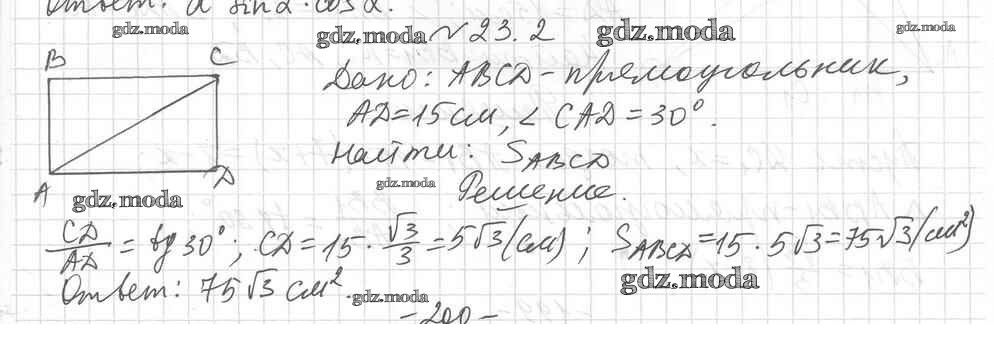 Ответ: a² sinα · cosα.
gdz.moda
gdz.moda №23.2 gdz.moda
gdz.moda
B C
Дано: ABCD - прямоугольник,
AD = 15 см, ∠ CAD = 30°.
Найти: S_ABCD
A D
gdz.moda
gdz.moda
Решение.
CD/AD = tg 30°; CD = 15 · √3/3 = 5√3 (см); S_ABCD = 15 · 5√3 = 75√3 (см²)
gdz.moda
Ответ: 75√3 см².
gdz.moda
- 200 -